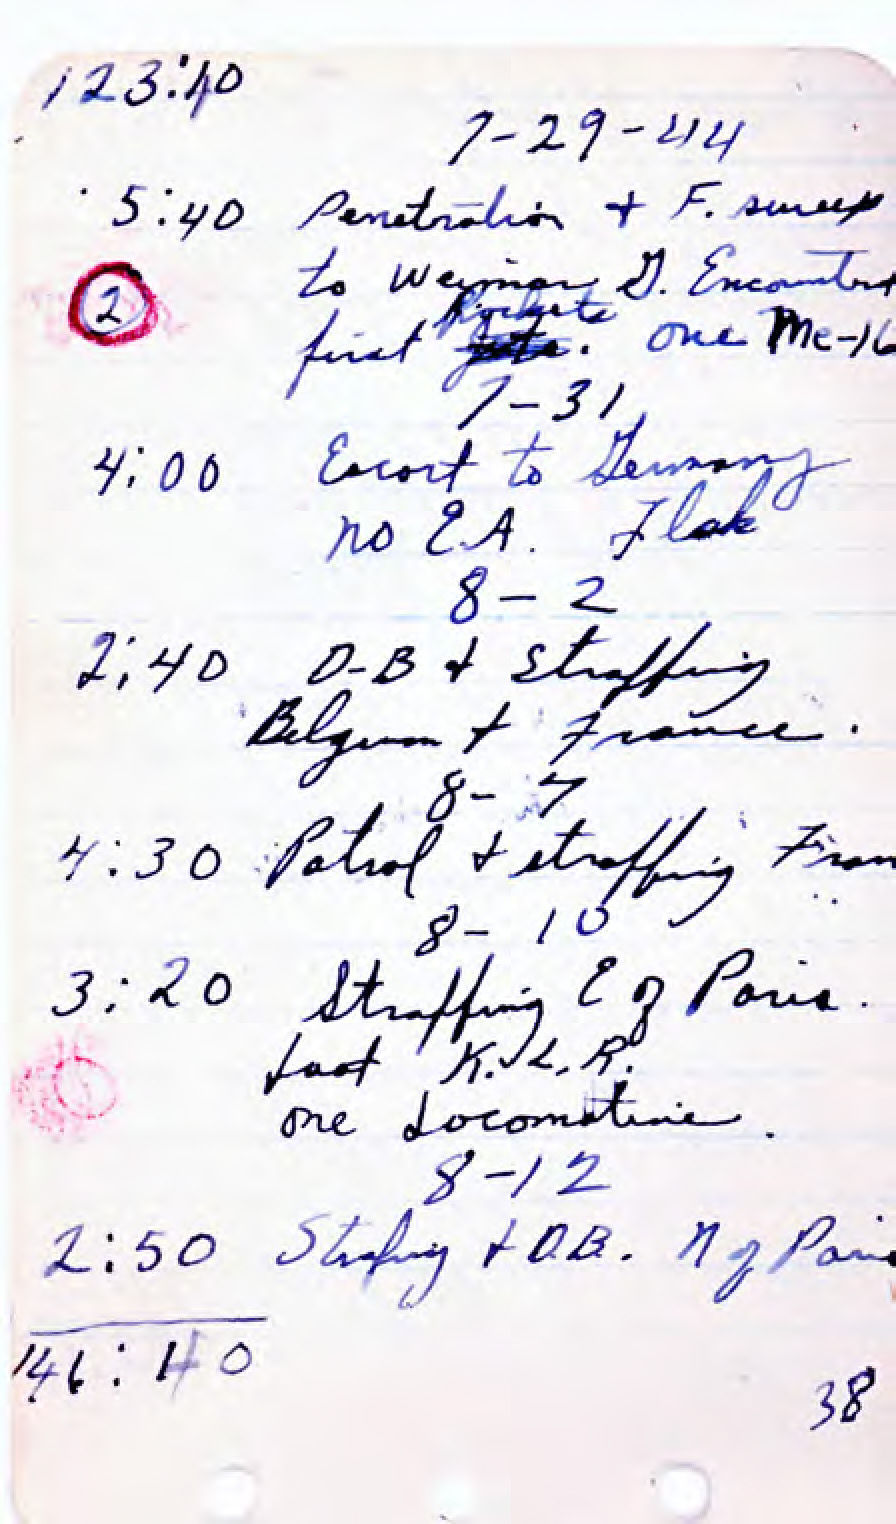 123:40
7-29-44
5:40 Penetration + F. sweep
2 to Weimar G. Encounterd
Rockets
first jets. one Me-16
7-31
4:00 Escort to Germany
no E.A. Flak
8-2
2:40 D-B & Straffing
Belgium + France.
8-7
4:30 Patrol & straffing Fran
8-10
3:20 Straffing E of Paris.
Lost K.L.R.
one Locomotive.
8-12
2:50 Strafing & D.B. N of Paris
146:40
38